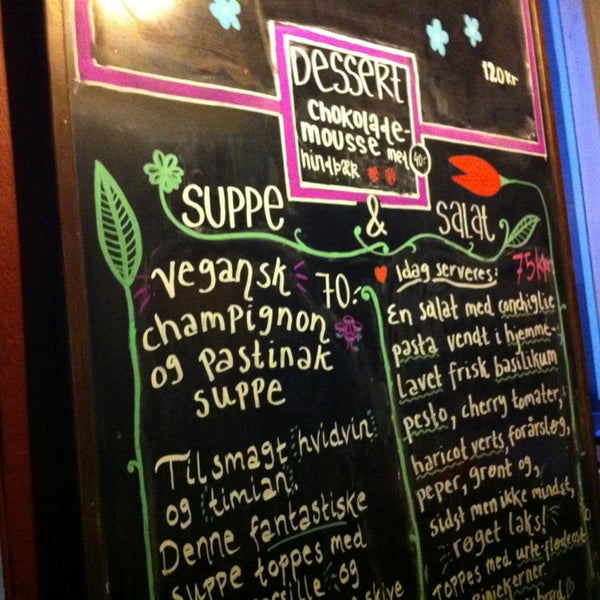 120 kr
DESSERT
Chokolade-
mousse med
hindbær
40:-
SUPPE & SALAT
Vegansk
champignon
og pastinak
suppe
70:-
Tilsmagt hvidvin
og timian.
Denne fantastiske
suppe toppes med
og
skive
Idag serveres: 75kr
En salat med conchiglie
pasta vendt i hjemme-
lavet frisk basilikum
pesto, cherry tomater,
haricot verts, forårsløg,
peper, grønt og,
sidst men ikke mindst,
røget laks!
Toppes med urte-flødeost
pinjekerner.